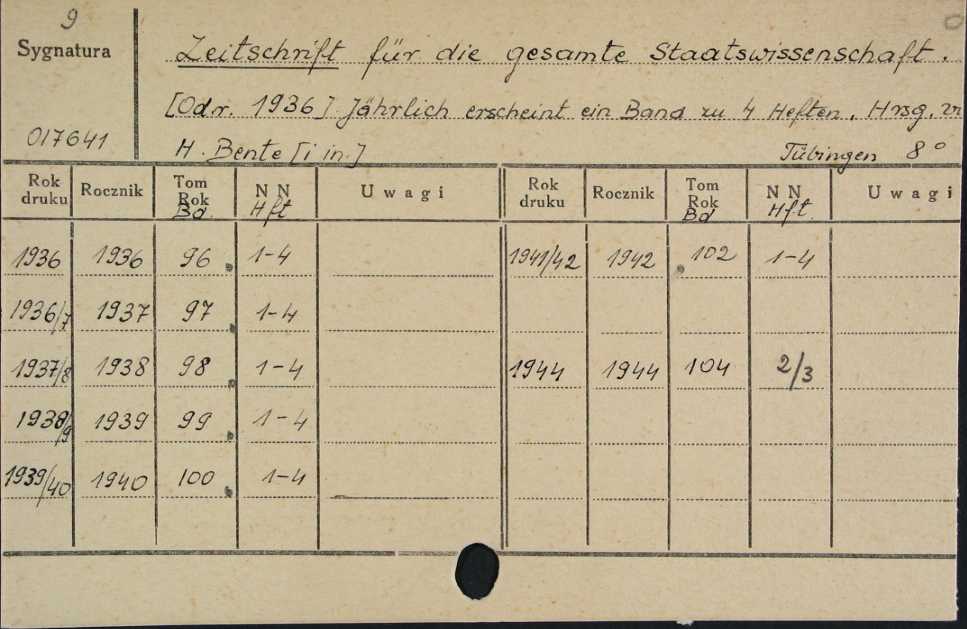 9
Sygnatura
017641
Zeitschrift für die gesamte Staatswissenschaft.
[Od r. 1936] Jährlich erscheint ein Band zu 4 Heften. Hrsg. v.
H. Bente [i in.] Tübingen 8°
Rok druku Rocznik Tom Rok Bd. N N Hft Uwagi Rok druku Rocznik Tom Rok Bd N N Hft. Uwagi
1936 1936 96 1-4 1941/42 1942 102 1-4
1936/7 1937 97 1-4
1937/8 1938 98 1-4 1944 1944 104 2/3
1938/9 1939 99 1-4
1939/40 1940 100 1-4